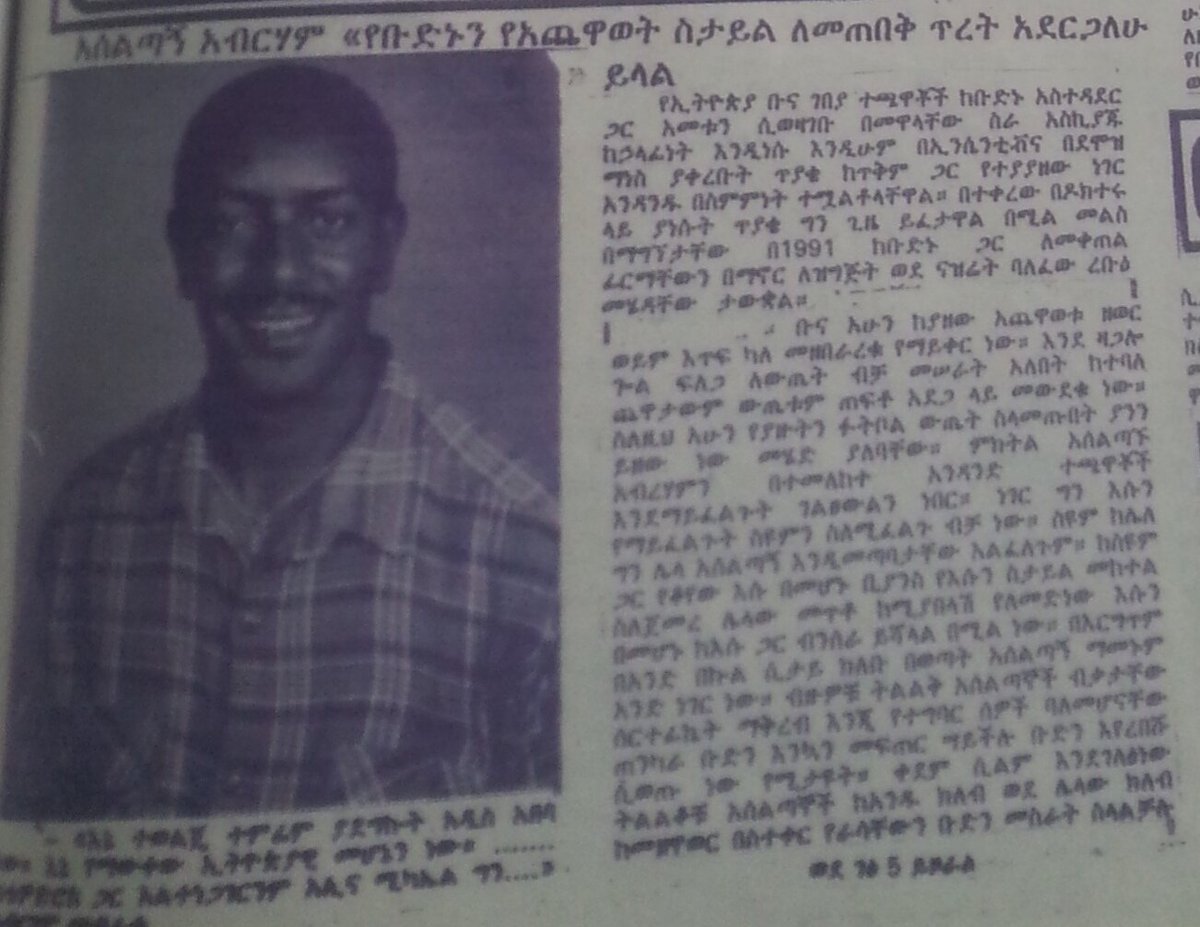 አሰልጣኝ አብርሃም «የቡድኑን የአጨዋወት ስታይል ለመጠበቅ ጥረት አደርጋለሁ
ይላል
የኢትዮጵያ ቡና ገበያ ተጫዋቾች ከቡድኑ አስተዳደር
ጋር አመቱን ሲወዛገቡ በመዋላቸው ስራ አስኪያጁ
ከኃላፊነት እንዲነሱ እንዲሁም በኢንሴንቲቭና በደሞዝ
ማነስ ያቀረቡት ጥያቄ ከጥቅም ጋር የተያያዘው ነገር
አንዳንዱ በስምምነት ተሟልቶላቸዋል። በተቀረው በዶክተሩ
ላይ ያነሱት ጥያቄ ግን ጊዜ ይፈታዋል በሚል መልስ
በማግኘታቸው በ1991 ከቡድኑ ጋር ለመቀጠል
ፊርማቸውን በማኖር ለዝግጅት ወደ ናዝሬት ባለፈው ረቡዕ
መሄዳቸው ታውቋል።
ቡና አሁን ከያዘው አጨዋወቱ ዘወር
ወይም እጥፍ ካለ መዘበራረቁ የማይቀር ነው። እንደ ዛጋሎ
ጐል ፍለጋ ለውጤት ብቻ መሠራት አለበት ከተባለ
ጨዋታውም ውጤቱም ጠፍቶ አደጋ ላይ መውደቁ ነው።
ስለዚህ አሁን የያዙትን ፉትቦል ውጤት ስላመጡበት ያንን
ይዘው ነው መሄድ ያለባቸው። ምክትል አሰልጣኙ
አብረሃምን በተመለከተ አንዳንድ ተጫዋቾች
እንደማይፈልጉት ገልፀውልን ነበር። ነገር ግን እሱን
የማይፈልጉት ስዩምን ስለሚፈልጉ ብቻ ነው። ስዩም ከሌለ
ግን ሌላ አሰልጣኝ እንዲመጣባታቸው አልፈለጉም። ከስዩም
ጋር የቆየው እሱ በመሆኑ ቢያንስ የእሱን ስታይል መከተል
ስለጀመረ ሌላው መጥቶ ከሚያበላሽ የለመድነው እሱን
በመሆኑ ከእሱ ጋር ብንሰራ ይሻላል በሚል ነው። በእርግጥም
በአንድ በኩል ሲታይ ክለቡ በወጣት አሰልጣኝ ማመኑም
አንድ ነገር ነው። ብዙዎቹ ትልልቅ አሰልጣኞች ብቃታቸው
ሰርተፊኬት ማቅረብ እንጂ የተግባር ሰዎች ባለመሆናቸው
ጠንካራ ቡድን እንኳን መፍጠር ማይችሉ ቡድን እየረበሹ
ሲወጡ ነው የሚታዩት። ቀደም ሲልም እንደገለፅነው
ትልልቆቹ አሰልጣኞች ከአንዱ ክለብ ወደ ሌላው ክለብ
ከመዘዋወር በስተቀር የራሳቸውን ቡድን መስራት ስላልቻሉ
ወደ ገፅ 5 ይዞራል
ተወልጄ ተምሬም ያደግኩት አዲስ አበባ
የማውቀው ኢትዮጵያዊ መሆኔን ነው። .......
ጋር አልተነጋገርንም እሲና ሚካኤል ግን....»